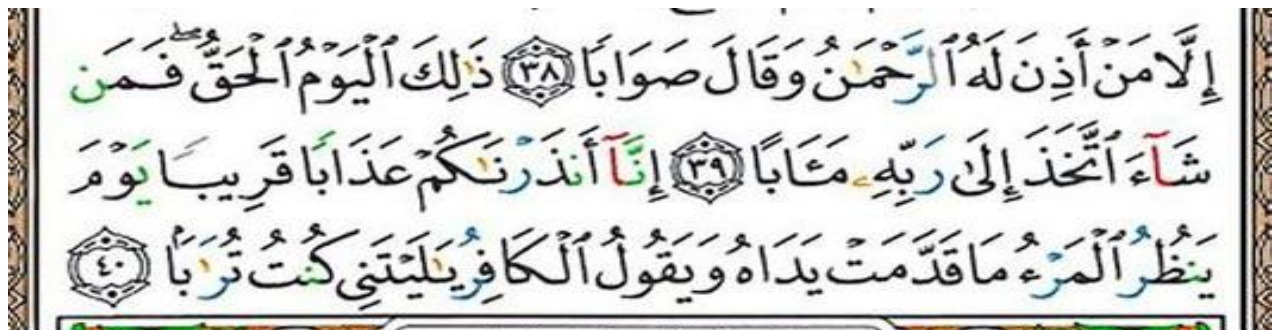 إِلَّا مَنْ أَذِنَ لَهُ ٱلرَّحْمَـٰنُ وَقَالَ صَوَابًا ﴿٣٨﴾ ذَٰلِكَ ٱلْيَوْمُ ٱلْحَقُّ ۖ فَمَن
شَآءَ ٱتَّخَذَ إِلَىٰ رَبِّهِۦ مَـَٔابًا ﴿٣٩﴾ إِنَّآ أَنذَرْنَـٰكُمْ عَذَابًا قَرِيبًا يَوْمَ
يَنظُرُ ٱلْمَرْءُ مَا قَدَّمَتْ يَدَاهُ وَيَقُولُ ٱلْكَافِرُ يَـٰلَيْتَنِى كُنتُ تُرَٰبًۢا ﴿٤٠﴾